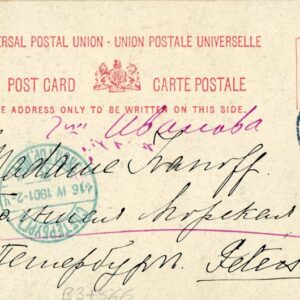 ERSAL POSTAL UNION - UNION POSTALE UNIVERSELLE
POST CARD CARTE POSTALE
E ADDRESS ONLY TO BE WRITTEN ON THIS SIDE.
Иванова
Madame Ivanoff.
Морская
Петербургъ. Peters
16 IV 1901
B34566